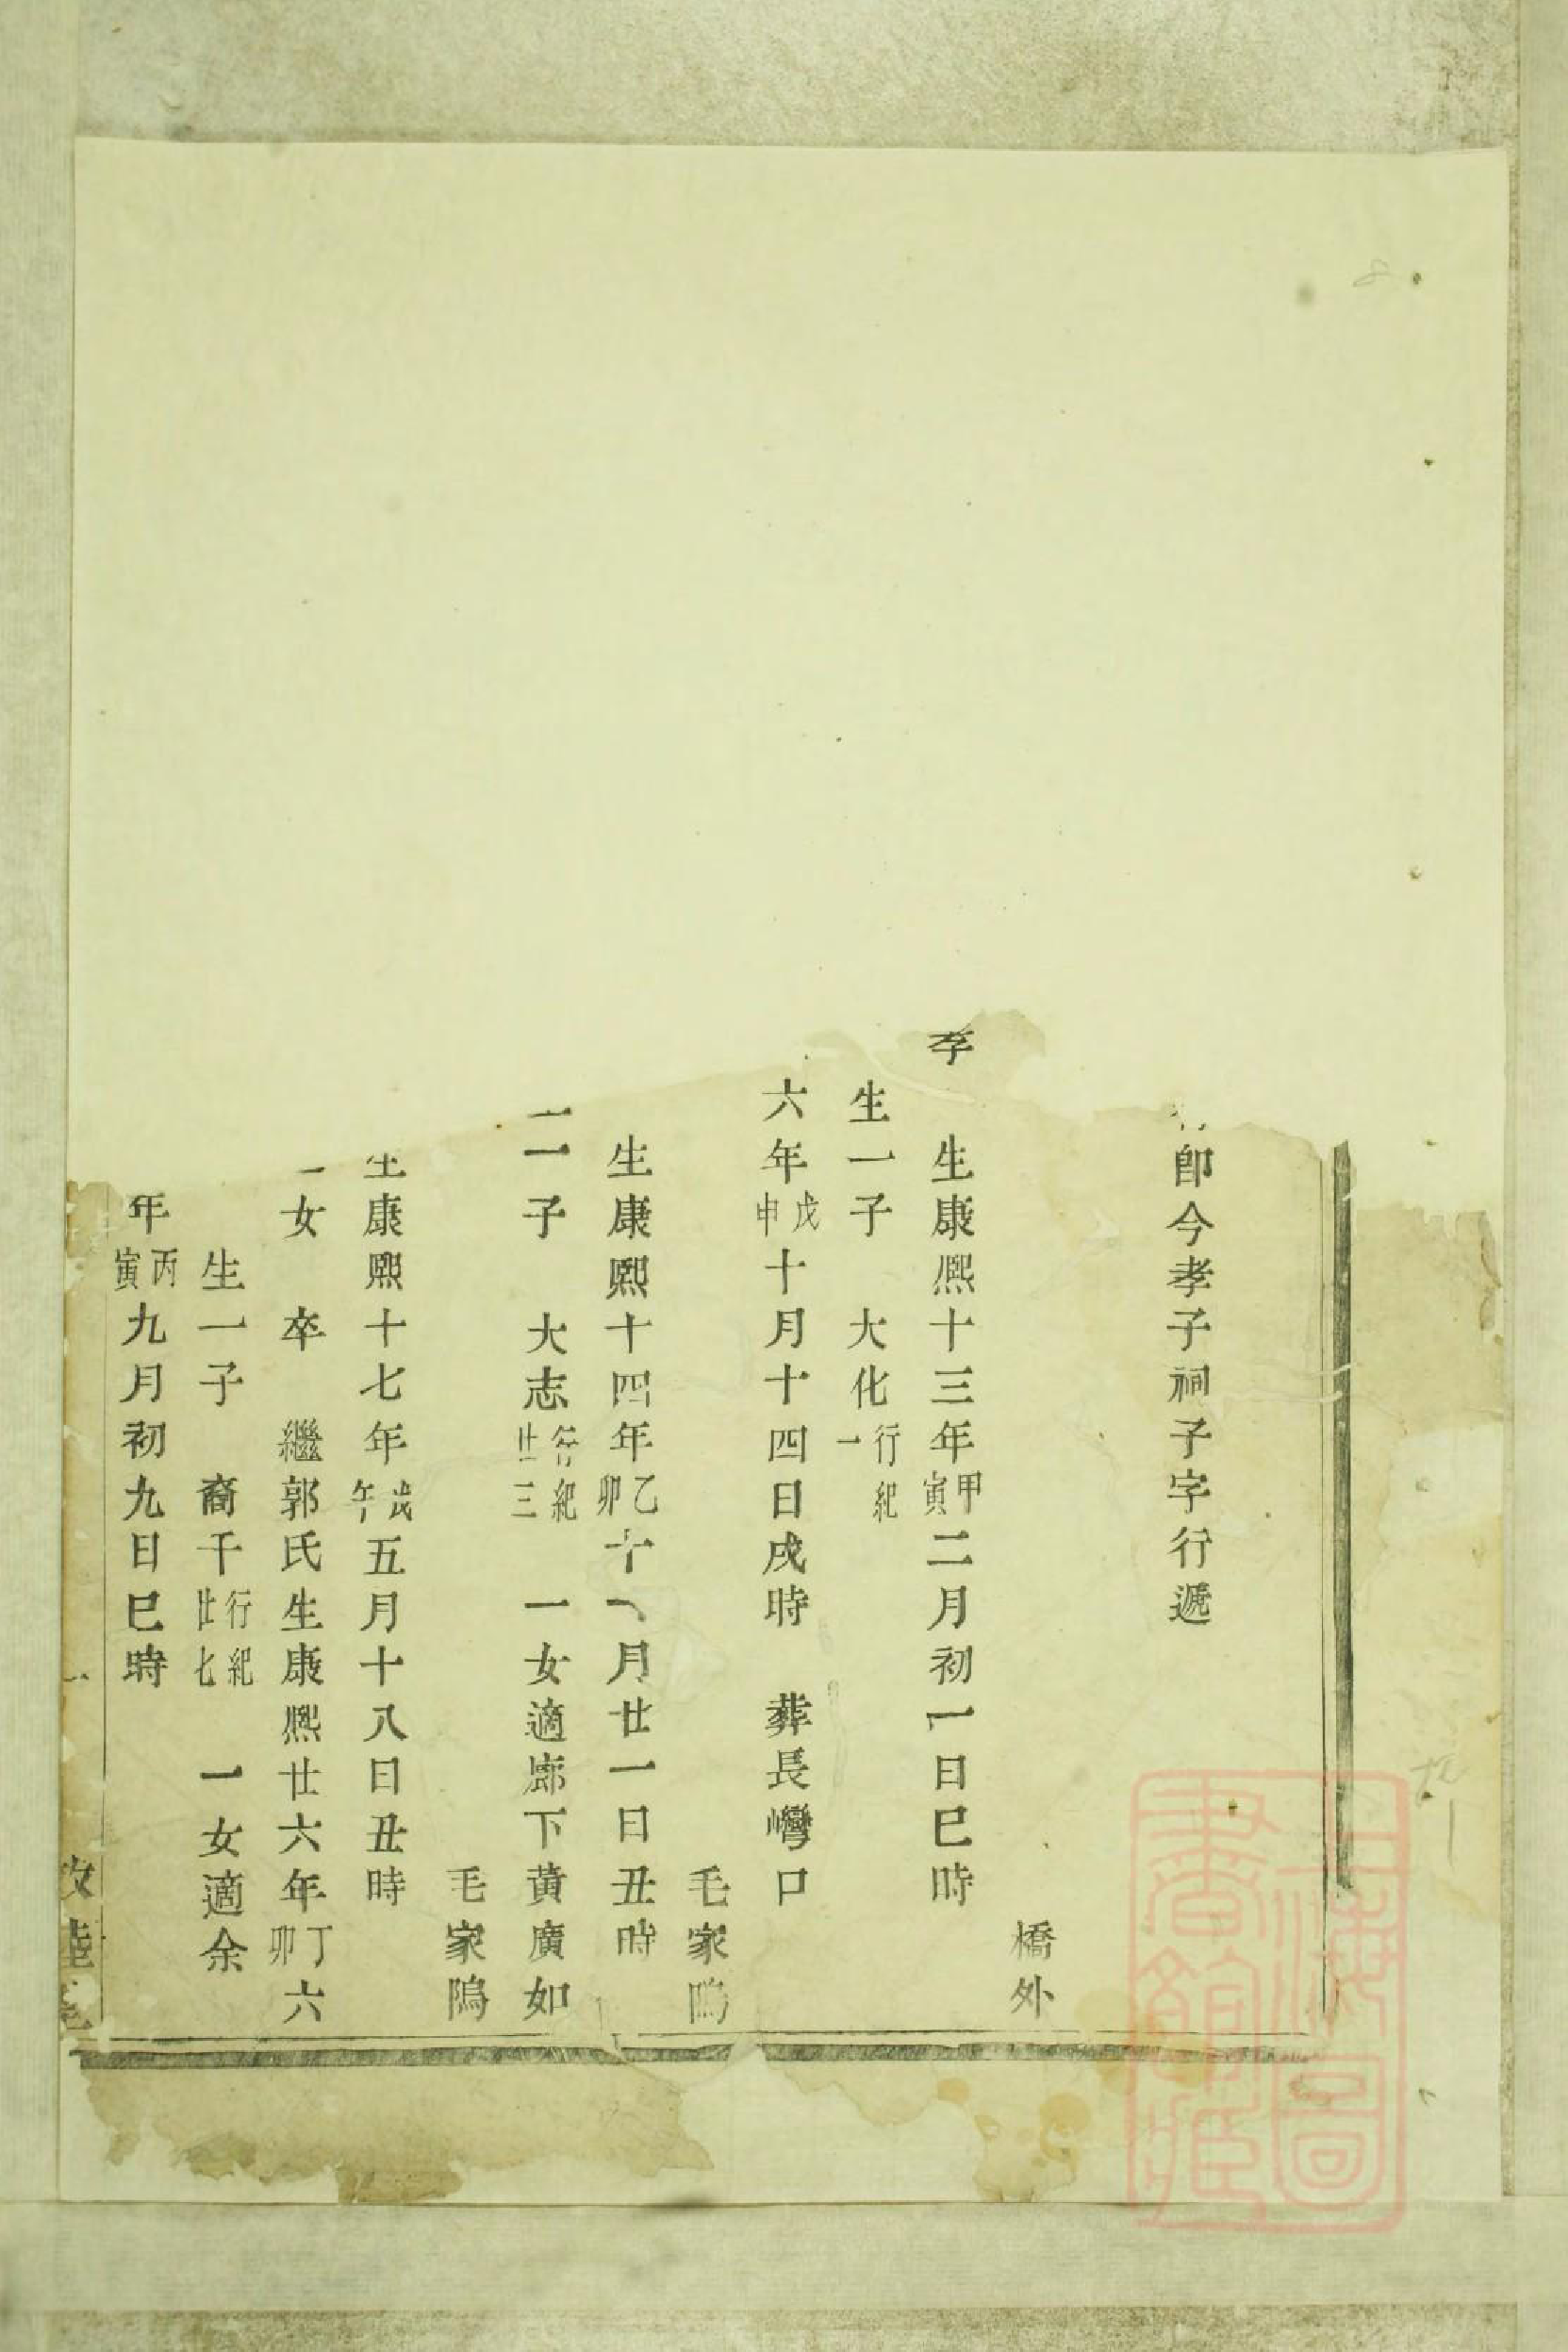 即今孝子祠子字行遞
橋外
生康熙十三年甲寅二月初一日巳時
生一子　大化行紀一
六年戊申十月十四日戌時　葬長巒口
毛家隝
生康熙十四年乙卯十一月廿一日丑時
二子　大志行紀廿三　一女適廊下黃廣如
毛家隝
生康熙十七年戊午五月十八日丑時
一女　卒　繼郭氏生康熙廿六年丁卯六
生一子　裔千行紀廿七　一女適余
年丙寅九月初九日巳時
上海圖書館藏